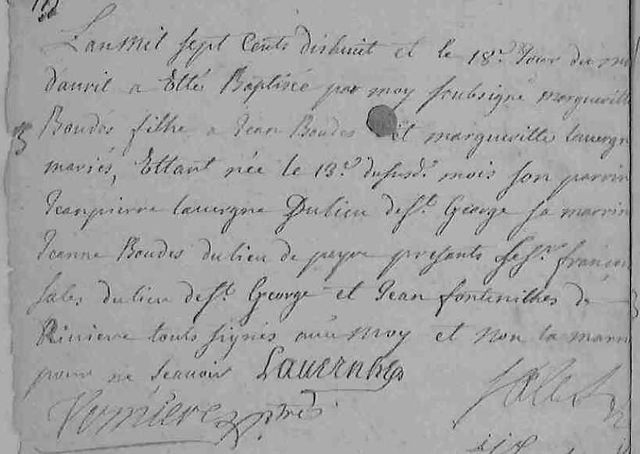 Lan mil sept cents dishuit et le 18e. Jour du mois
davril a Esté Baptisée par moy soubsigné margueritte
Boudes filhe a Jean Boudes et margueritte lauergn
mariés, Estant née le 13e. dususd. mois son parrin
Jeanpierre lauergne Dulieu de St. George sa marrin
Jeanne Boudes dulieu de peyre presants les srs. françois
sales dulieu de St. George et Jean fontenilhes de
Riuiere touts signés auec moy et non la marr
pour ne scauoir Lauernhe
Verniere ptre
Sales